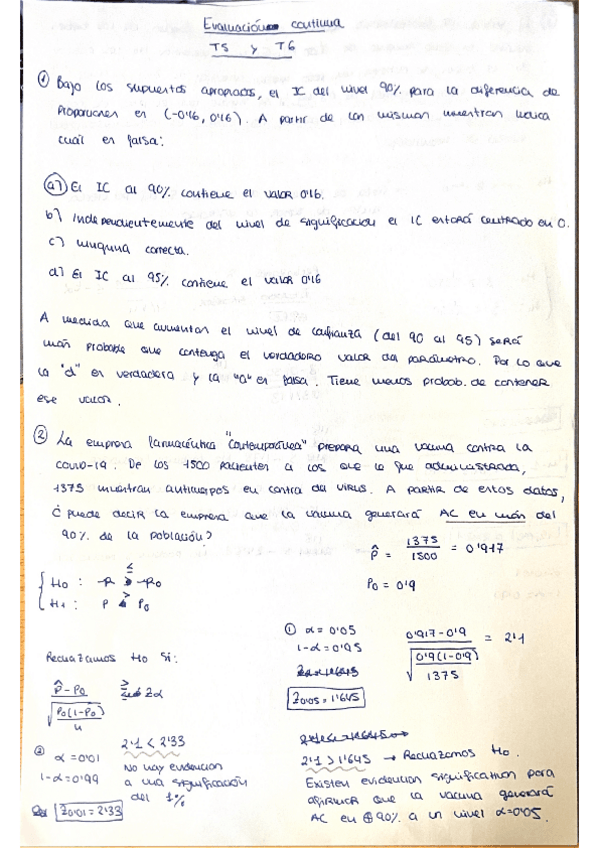 Evaluación continua
T5 y T6
① Bajo los supuestos apropiados, el IC del nivel 90% para la diferencia de
proporciones es (-0'16, 0'16). A partir de las mismas muestras indica
cuál es falsa:
a) El IC al 90% contiene el valor 0'16.
b) Independientemente del nivel de significación el IC estará centrado en 0.
c) ninguna correcta.
d) El IC al 95% contiene el valor 0'16
A medida que aumentan el nivel de confianza (del 90 al 95) será
más probable que contenga el verdadero valor del parámetro. Por lo que
la "d" es verdadera y la "a" es falsa. Tiene menos probab. de contener
ese valor.
② La empresa farmacéutica "Contemporánea" prepara una vacuna contra la
covid-19. De los 1500 pacientes a los que le fue administrada,
1375 muestran anticuerpos en contra del virus. A partir de estos datos,
¿puede decir la empresa que la vacuna generará AC en más del
90% de la población?
p̂ = 1375/1500 = 0'917
H0: P ≤ P0
P0 = 0'9
H1: P > P0
① α = 0'05
1-α = 0'95
Z0'05 = 1'645
0'917-0'9 / √(0'9(1-0'9)/1375) = 2'1
Rechazamos Ho si:
p̂ - P0 / √(P0(1-P0)/n) ≥ Zα
2'1 > 1'645 → Rechazamos Ho.
Existen evidencias significativas para
afirmar que la vacuna generará
AC en ⊕90% a un nivel α=0'05.
② α = 0'01
1-α = 0'99
Z0'01 = 2'33
2'1 < 2'33
No hay evidencias
a una significación
del 1%